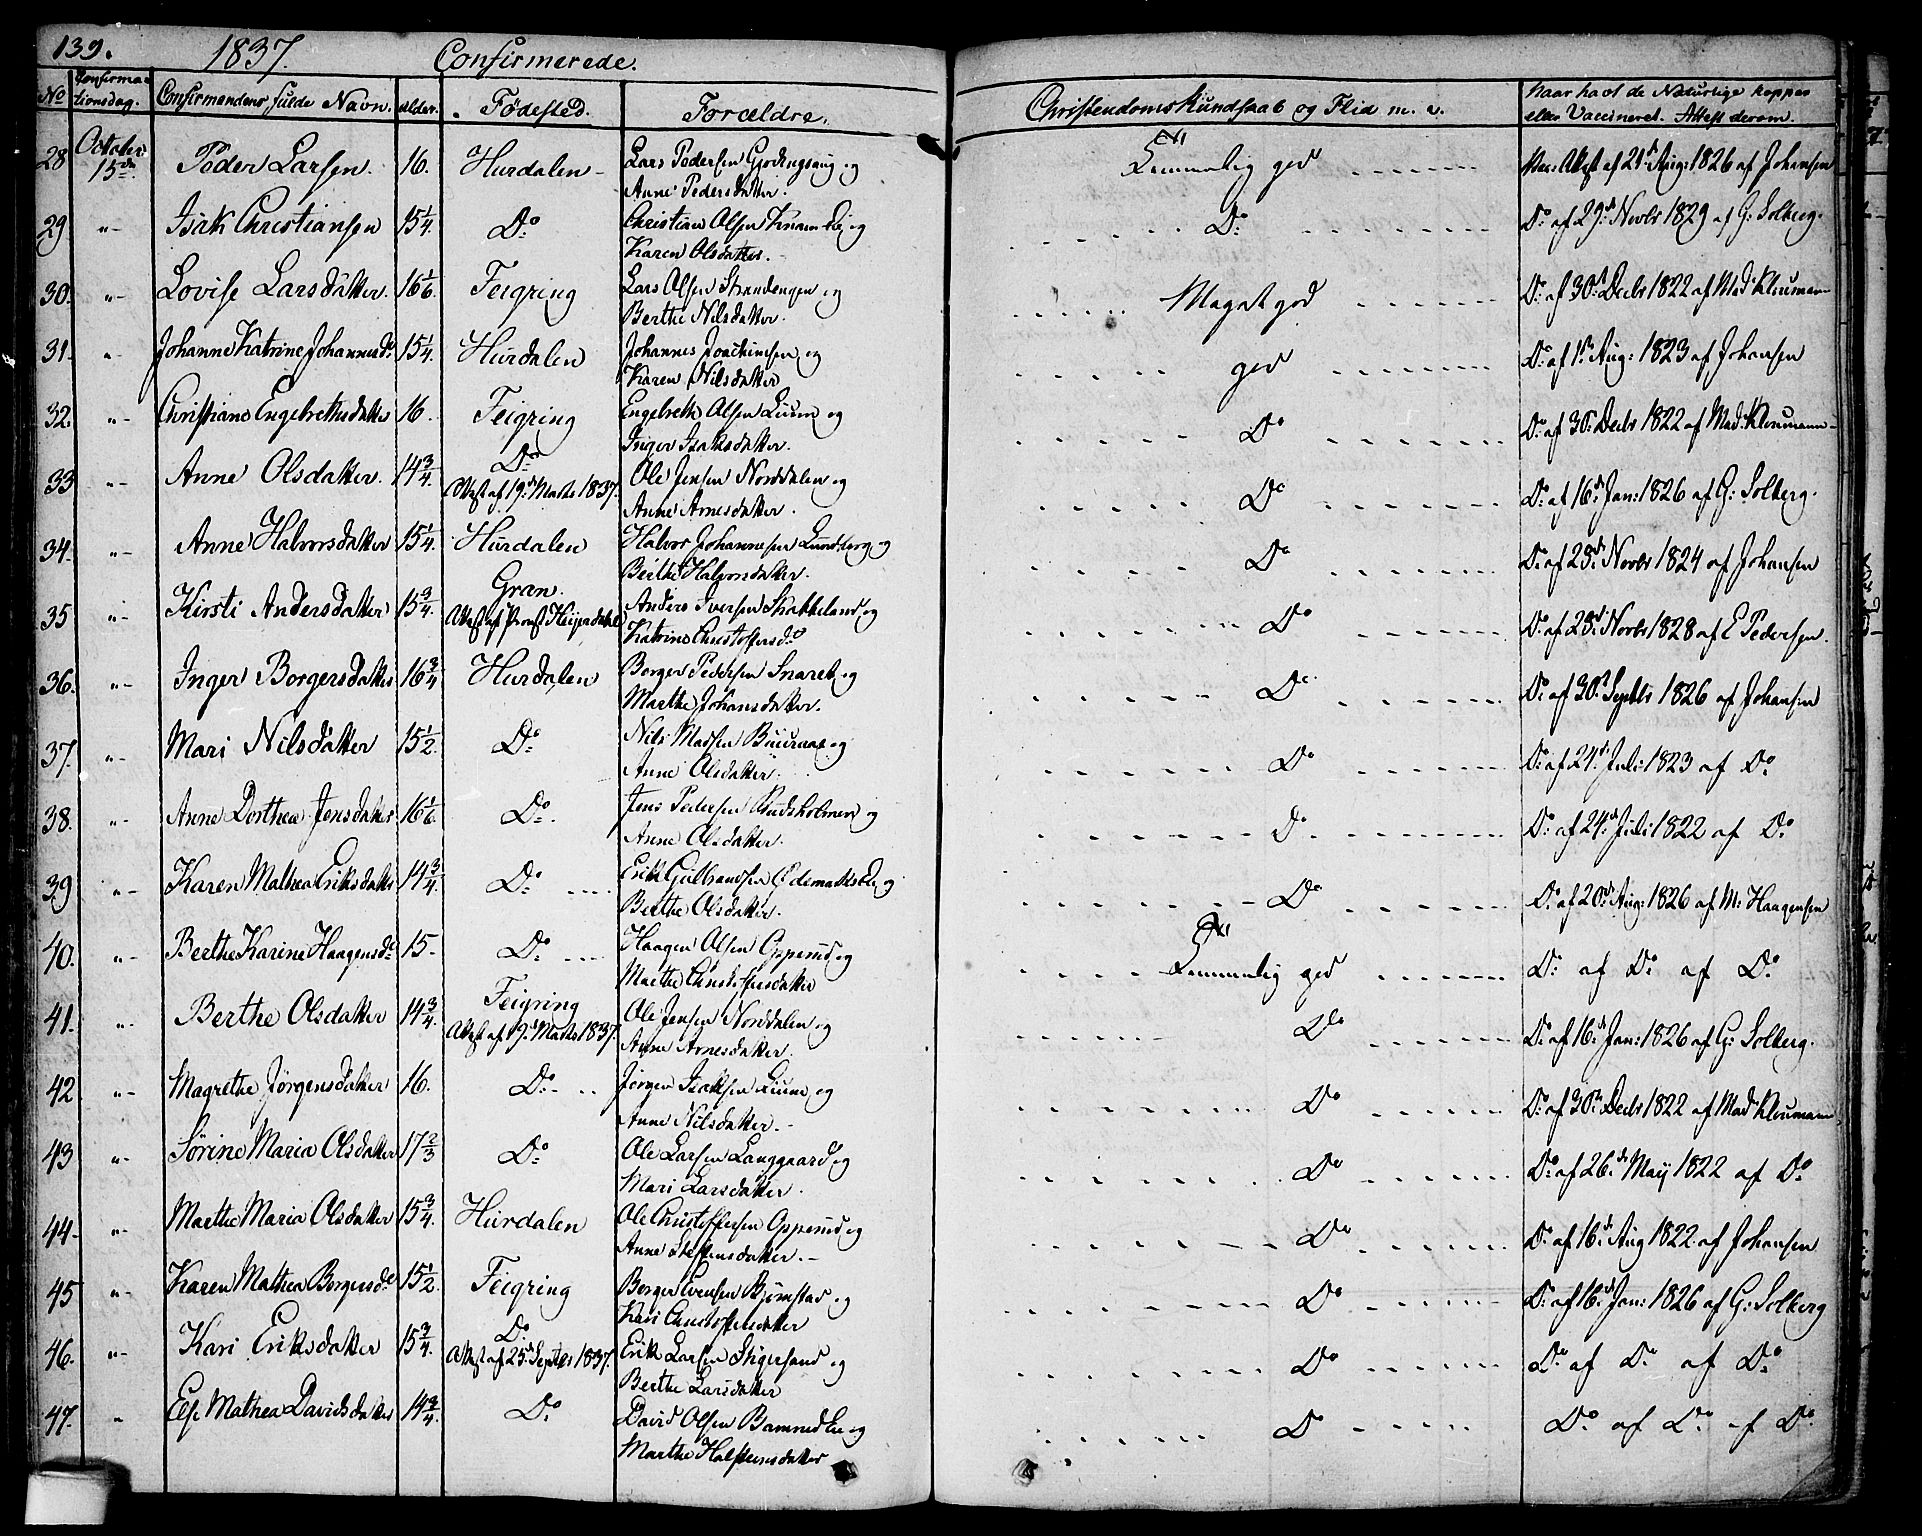 139. 1837. Confirmerede.
No Confirma-tionsdag. Confirmandens fulde Navn. alder. Fødested. Forældre. Christendoms Kundskab og Flid m. v. Naar havt de Naturlige kopper eller Vaccineret. Attest derom.
28 October 15de Peder Larsen. 16. Hurdalen Lars Pedersen og Anne Pedersdatter. Temmelig god Attest af 21d Aug: 1826 af Johansen
29 "- Isak Christiansen 15 1/4. Do Christian Olsen og Karen Olsdatter. Do Do af 29d Novbr 1829 af G: Solberg.
30. "- Lovise Larsdatter. 16 1/6. Feigring Lars Olsen Strandengen og Berthe Nilsdatter. Meget god Do af 30d Decbr 1822 af Mad: Kleumann
31. " Johanne Katrine Johannesdr. 15 1/4. Hurdalen Johannes Joachimsen og Karen Nilsdatter god Do af 1n Aug: 1823 af Johansen
32. "- Christiane Engebrethsdatter 16. Feigring Engebreth Olsen Liune og Inger Isaksdatter. Do Do af 30. Decbr 1822 af Mad: Kleumann
33 "- Anne Olsdatter. 14 3/4. Do Attest af 19d Marts 1837. Ole Jensen Norddalen og Anne Arnesdatter. Do Do af 16d Jan: 1826 af G: Solberg.
34. "- Anne Halvorsdatter 15 1/4. Hurdalen Halvor Johannesen Lundberg og Berthe Halvorsdatter. Do Do af 25d Novbr 1824 af Johansen
35 "- Kirsti Andersdatter 15 3/4. Gran. Attest af Provst Heijerdahl Anders Iversen og Katrine Christofersdr Do Do af 28d Novbr 1828 af E Pedersen.
36. "- Inger Borgersdatter 16 3/4 Hurdalen Borger Pedersen Snareb. og Marthe Johansdatter. Do Do af 30d Septbr 1826 af Johansen
37. "- Mari Nilsdatter 15 1/2. Do Nils Madsen og Anne Olsdatter. Do Do af 24d Juli 1823 af Do
38. "- Anne Dorthea Jensdatter 16 1/6. Do Jens Pedersen Rudsholmen og Anne Olsdatter. Do Do af 24d Juli 1822 af Do
39 "- Karen Mathea Eriksdatter 14 3/4. Do Erik Gulbrandsen og Berthe Olsdatter. Do Do af 20d Aug: 1826 af M: Haagensen
40. "- Berthe Karine Haagensdr 15. Do Haagen Olsen Opperud og Marthe Christoffersdatter Temmelig god Do af Do af Do
41. "- Berthe Olsdatter 14 3/4. Feigring Attest af 19d Marts 1837. Ole Jensen Norddalen og Anne Arnesdatter. Do Do af 16d Jan: 1826 af G: Solberg.
42 "- Magrethe Jørgensdatter 16. Do Jørgen Isaksen Liune og Anne Nilsdatter. Do Do af 30n Decbr 1822 af Mad: Kleumann
43 "- Sørine Maria Olsdatter 17 2/3 Do Ole Larsen Langgaard og Mari Larsdatter. Do Do af 26d May 1822 af Do
44. "- Marthe Maria Olsdatter 15 3/4. Hurdalen Ole Christoffersen Opperud og Anne Steffensdatter. Do Do af 16d Aug 1822 af Johansen
45 "- Karen Mathea Borgersdr 15 1/2. Feigring Borger Evensen Bjørnstad og Kari Christoffersdatter Do Do af 16d Jan: 1826 af G: Solberg
46. "- Kari Eriksdatter 15 3/4. Do Attest af 25d Septbr 1837. Erik Larsen Stigersand og Berthe Larsdatter Do Do af Do af Do
47. " Else Mathea Davidsdatter 14 3/4. Do David Olsen og Marthe Halstensdatter Do Do af Do af Do